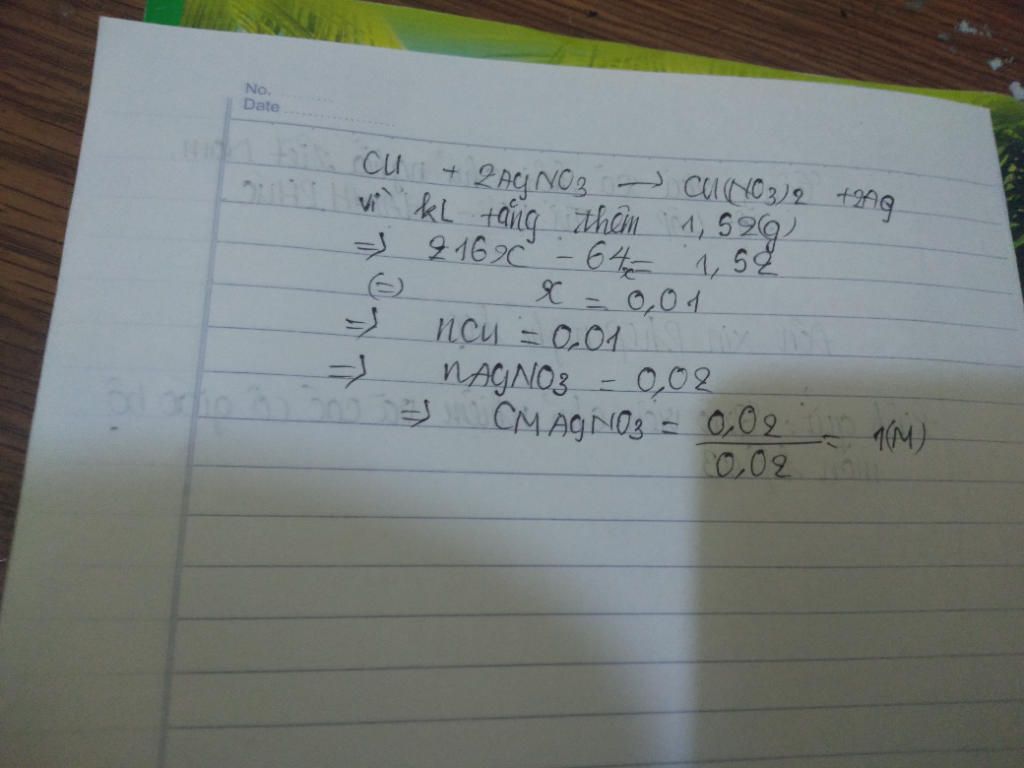 No.
Date
Cu + 2AgNO3 → Cu(NO3)2 + 2Ag
vì kL tăng thêm 1,52(g)
=> 216x - 64x = 1,52
(=) x = 0,01
=> nCu = 0,01
=> nAgNO3 = 0,02
=> CM AgNO3 = 0,02 / 0,02 = 1(M)